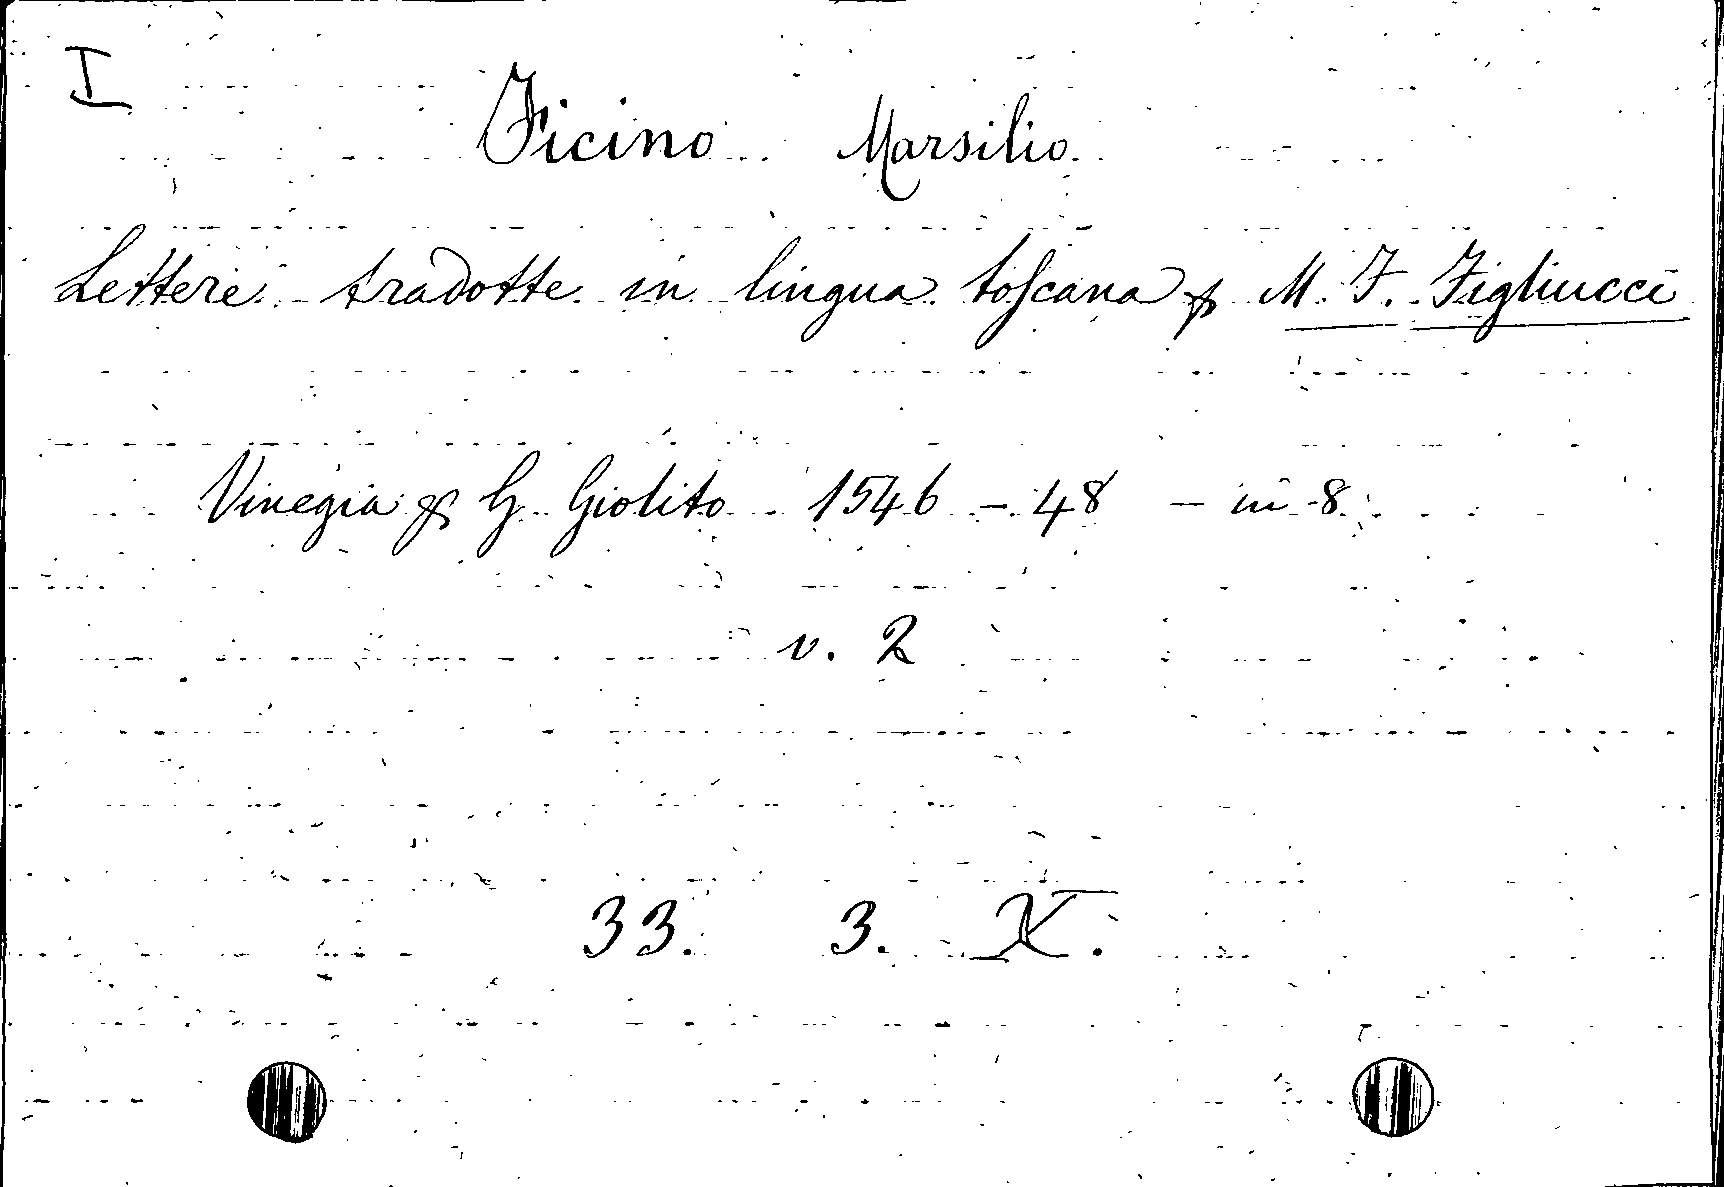 I
Ficino Marsilio
Lettere tradotte in lingua toscana p M. F. Figliucci
Vinegia p G. Giolito 1546 - 48 - in 8.
v. 2
33. 3. X.